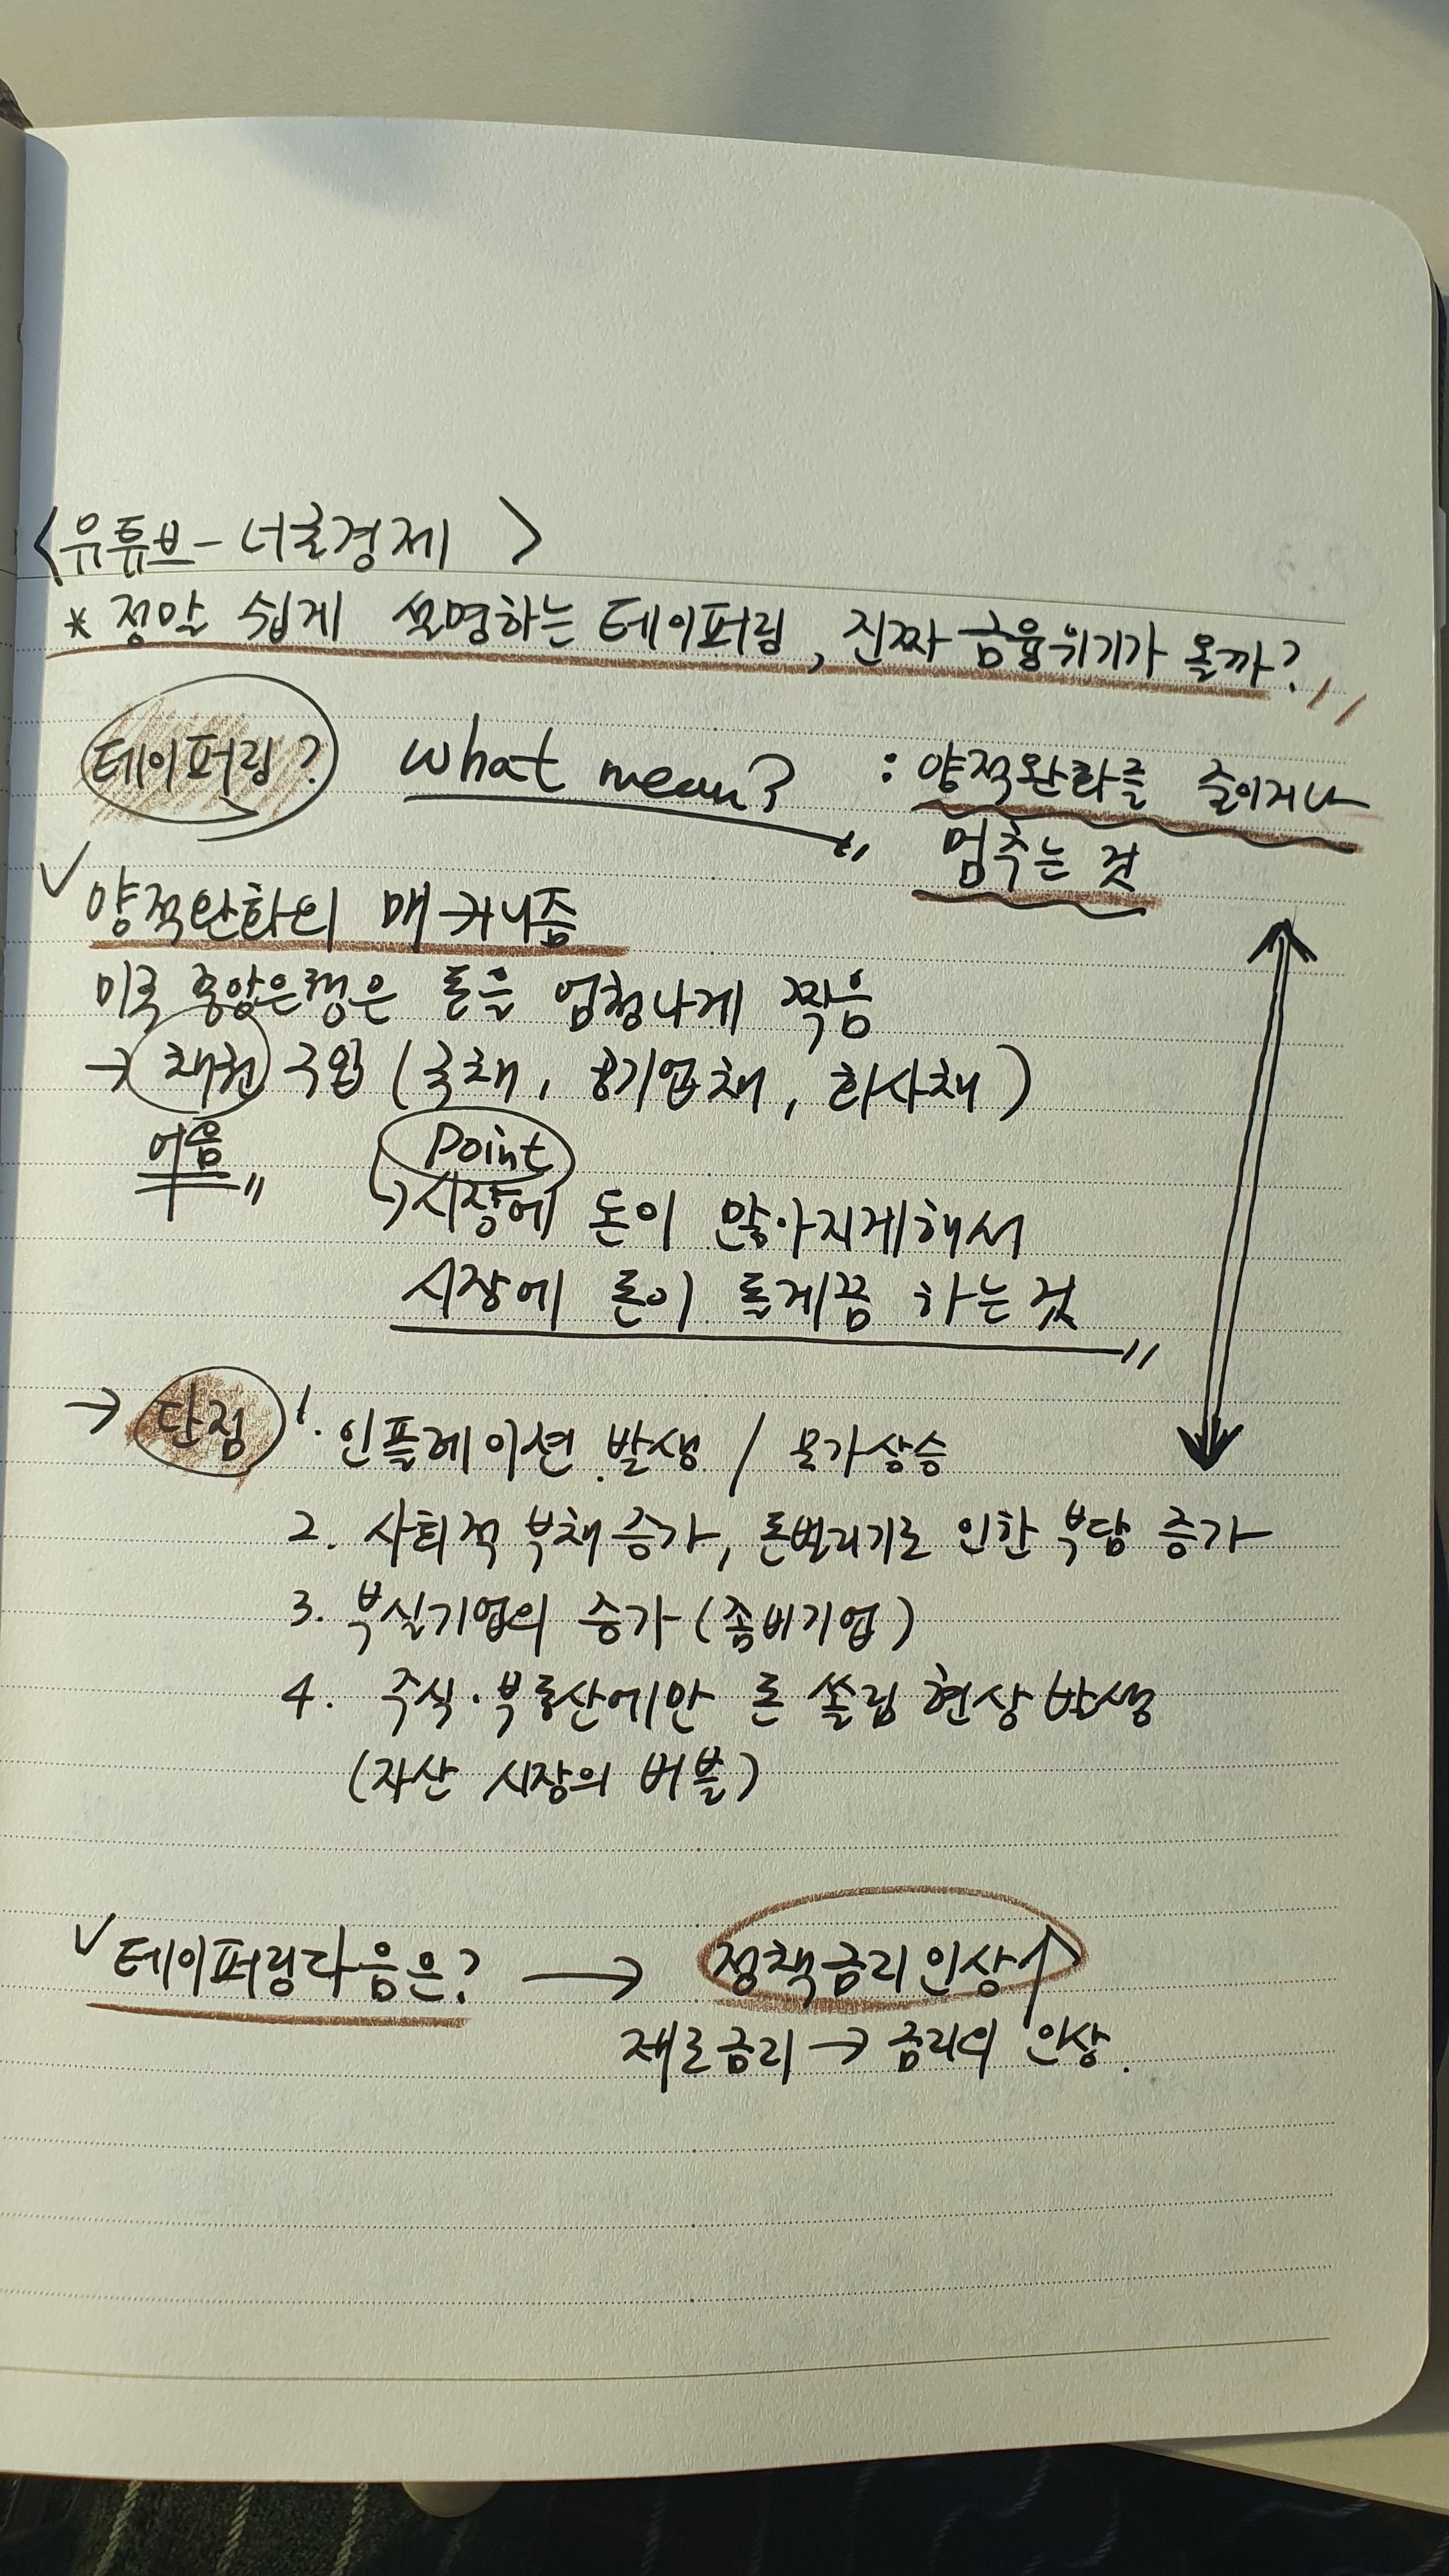 <유튜브 - 너굴경제 >
* 정말 쉽게 설명하는 테이퍼링, 진짜 금융위기가 올까?
테이퍼링? what mean? : 양적완화를 줄이거나
멈추는 것
양적완화의 매커니즘
미국 중앙은행은 돈을 엄청나게 찍음
→ 채권 구입 (국채, 공기업채, 회사채)
어음 Point
시장에 돈이 많아지게해서
시장에 돈이 돌게끔 하는 것
→ 단점 1. 인플레이션 발생 / 물가상승
2. 사회적 부채 증가, 돈뿌리기로 인한 부담 증가
3. 부실기업의 증가 (좀비기업)
4. 주식·부동산에만 돈 쏠림 현상 발생
(자산 시장의 버블)
테이퍼링다음은? → 정책금리인상↑
제로금리 → 금리의 인상.